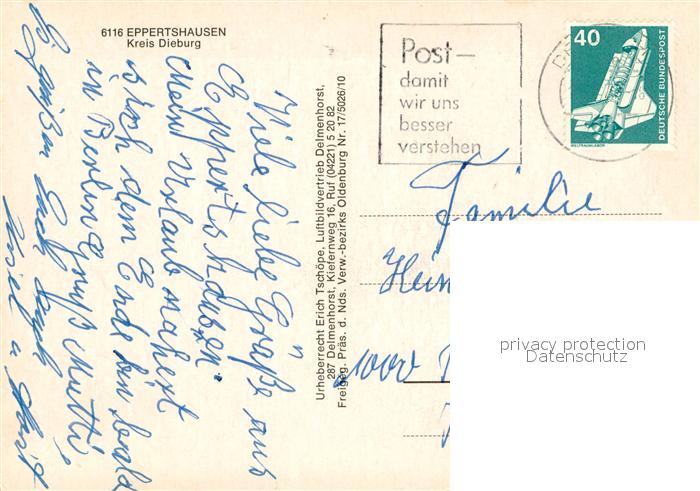 6116 EPPERTSHAUSEN
Kreis Dieburg
Post—
damit
wir uns
besser
verstehen
40
DEUTSCHE BUNDESPOST
WELTRAUMLABOR
Viele liebe Grüße aus
Eppertshausen.
Mein Urlaub nähert
sich dem Ende bin bald
in Berlin Gruß Mutti
Grüßen Euch auch
Urheberrecht Erich Tschöpe, Luftbildvertrieb Delmenhorst,
287 Delmenhorst, Kiefernweg 16, Ruf (04221) 5 20 82
Freigeg. Präs. d. Nds. Verw.-bezirks Oldenburg Nr. 17/5026/10
Familie
Hein
1000
privacy protection
Datenschutz